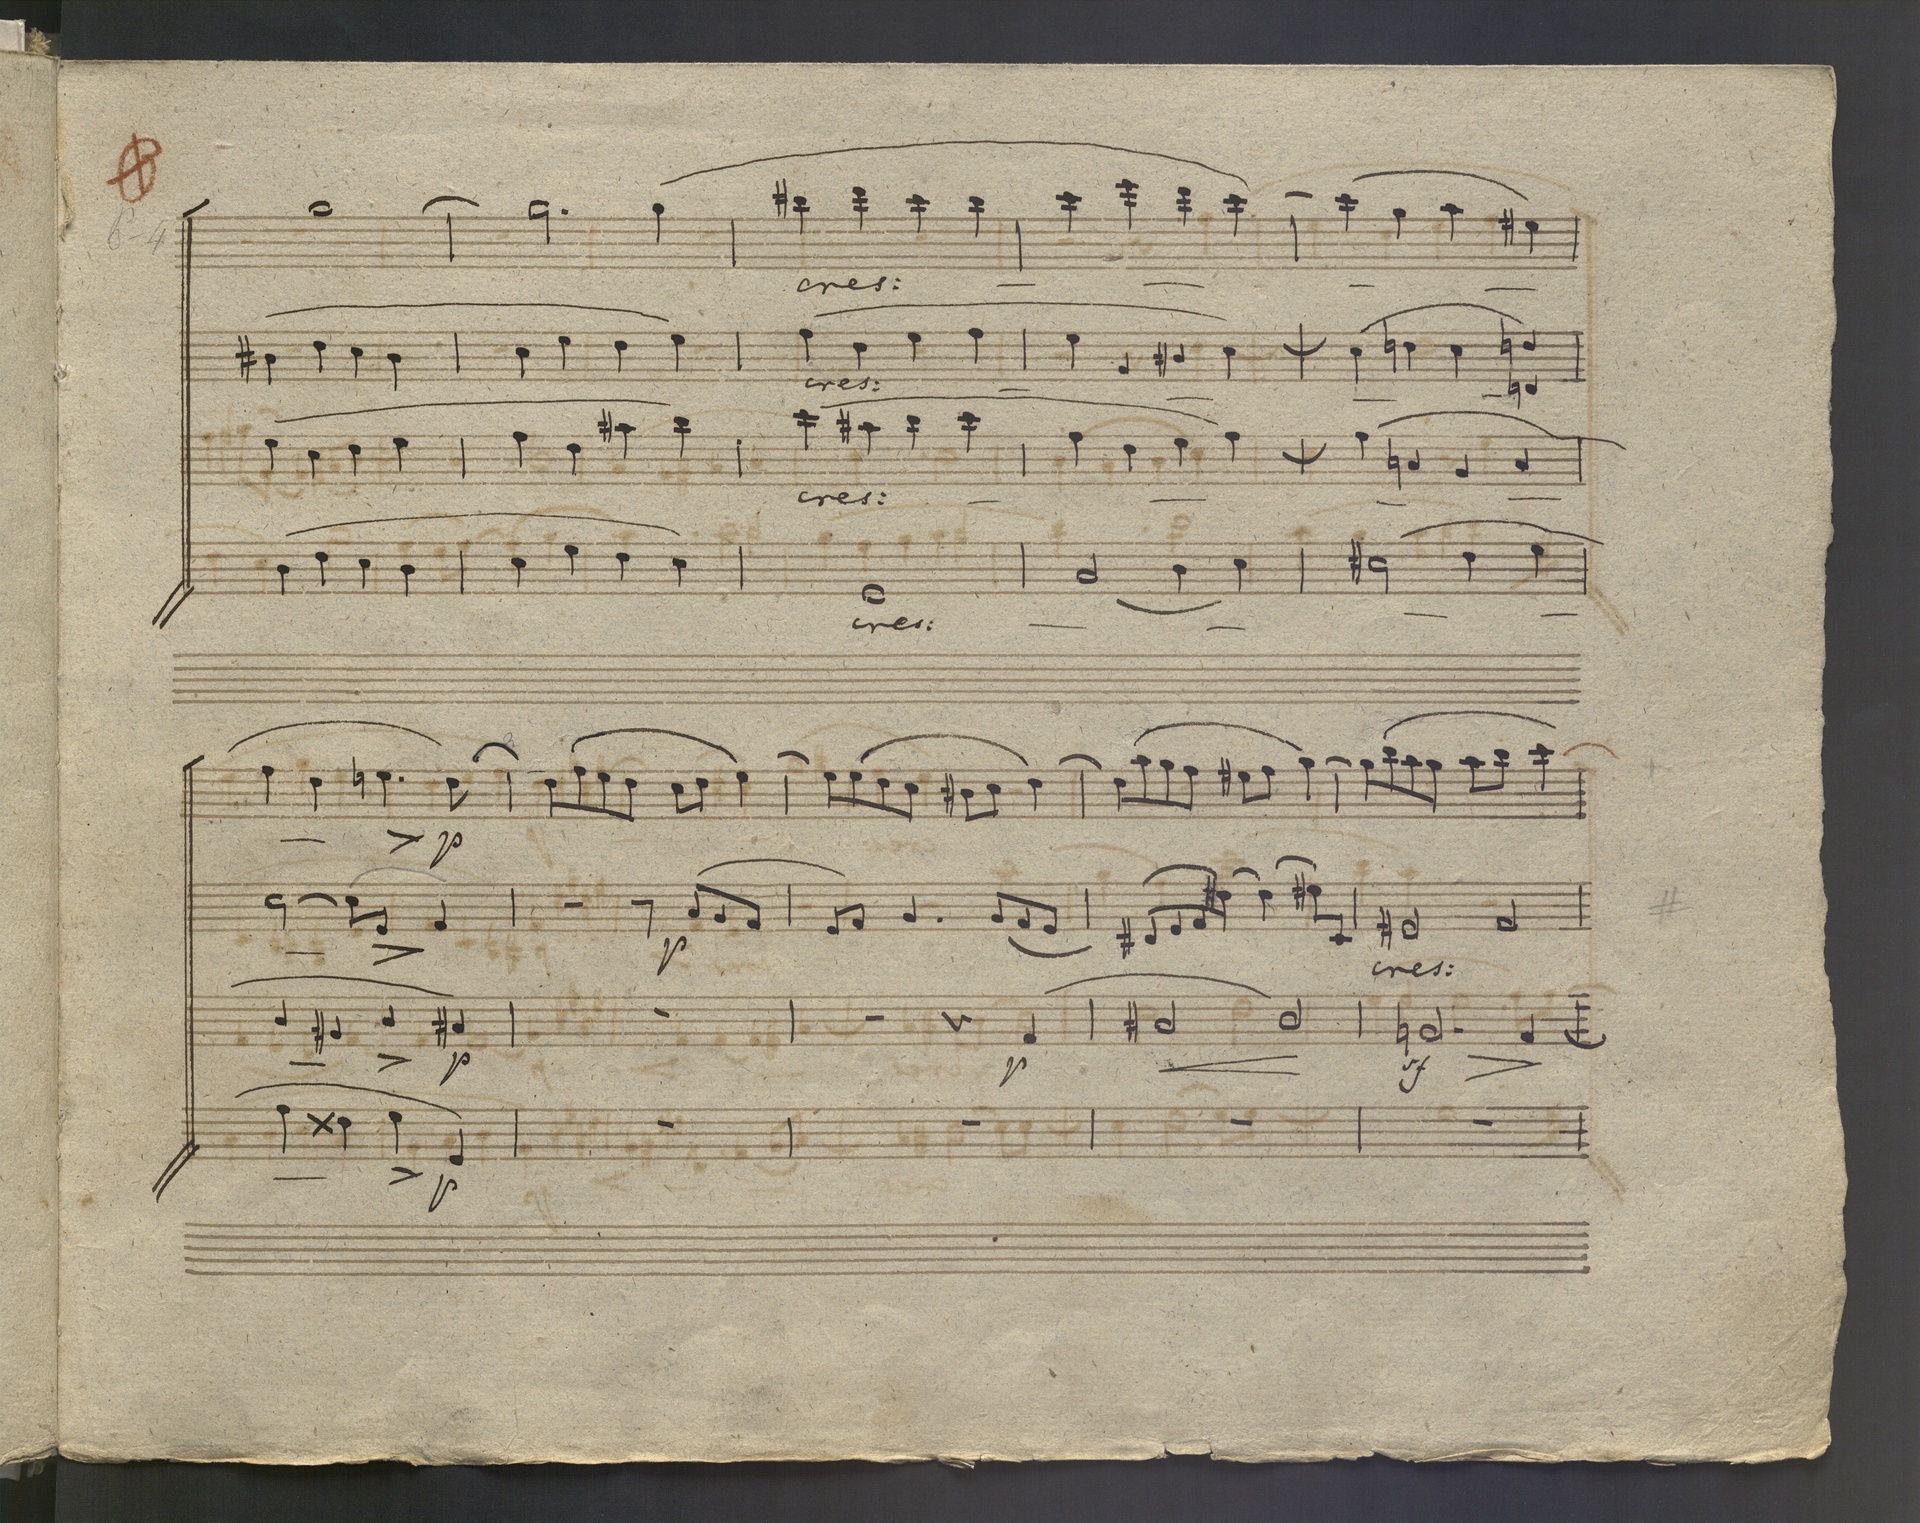 cres:
cres:
cres:
cres:
p
p
cres:
p
p
sf
p